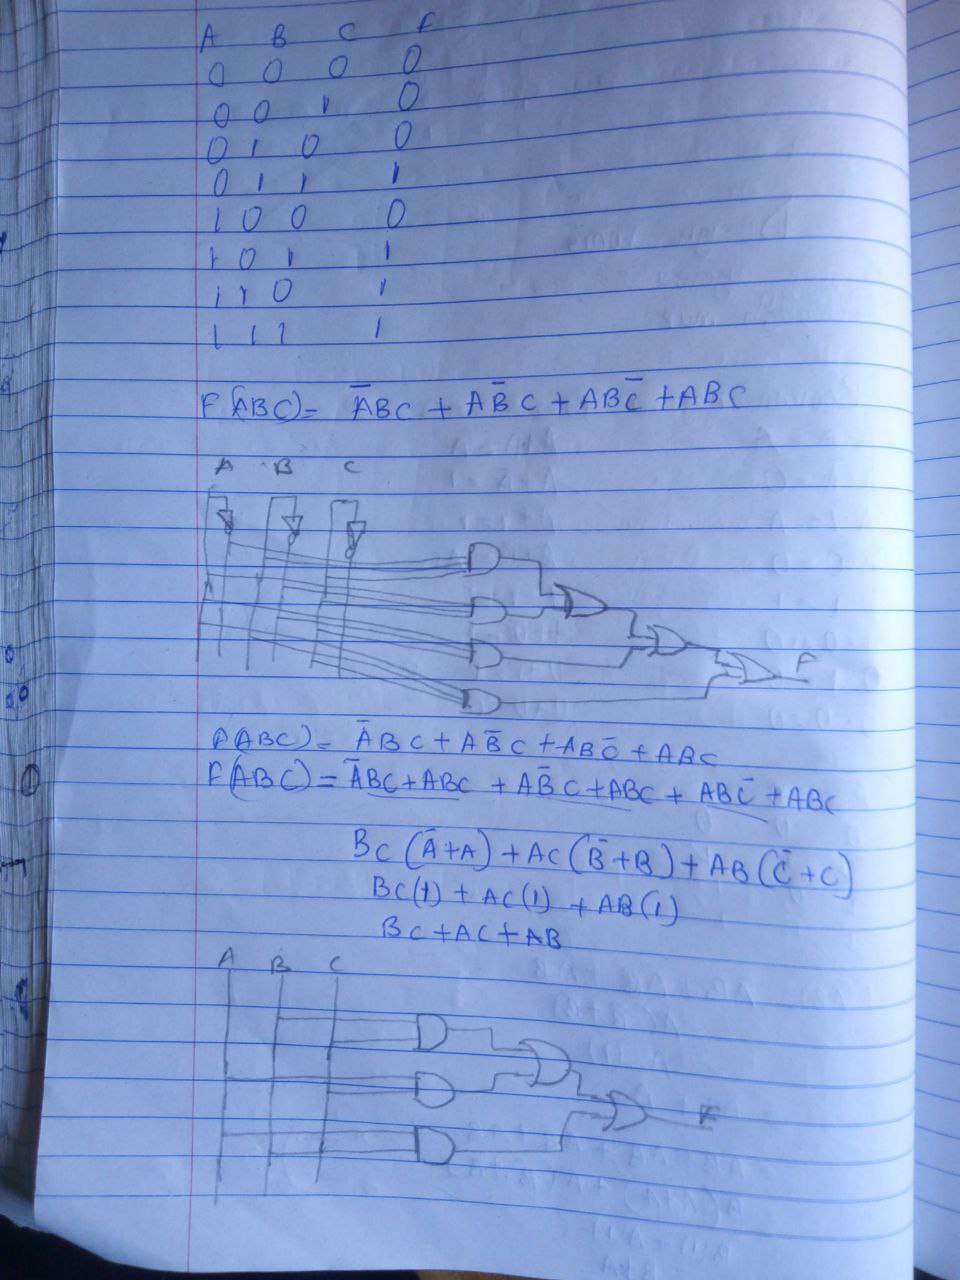 A B C F
0 0 0 0
0 0 1 0
0 1 0 0
0 1 1 1
1 0 0 0
1 0 1 1
1 1 0 1
1 1 1 1
F(ABC) = A̅BC + AB̅C + ABC̅ + ABC
A B C
F
F(ABC) = A̅BC + AB̅C + ABC̅ + ABC
F(ABC) = A̅BC + ABC + AB̅C + ABC + ABC̅ + ABC
BC(A̅+A) + AC(B̅+B) + AB(C̅+C)
BC(1) + AC(1) + AB(1)
BC + AC + AB
A B C
F